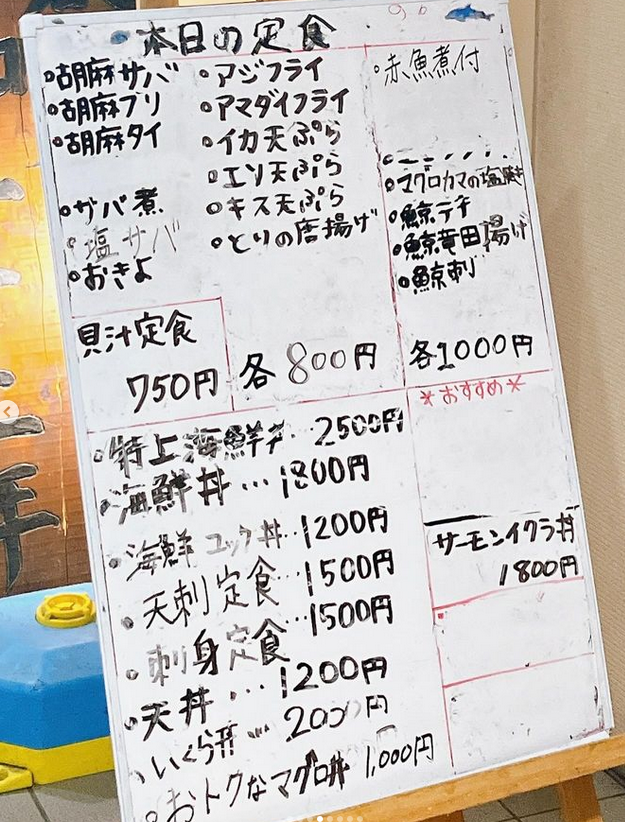 本日の定食
・胡麻サバ
・胡麻ブリ
・胡麻タイ
・サバ煮
・塩サバ
・おきよ
・アジフライ
・アマダイフライ
・イカ天ぷら
・エソ天ぷら
・キス天ぷら
・とりの唐揚げ
各800円
・赤魚煮付
・マグロカマの塩焼き
・鯨テキ
・鯨竜田揚げ
・鯨刺し
各1000円
貝汁定食
750円
・特上海鮮丼…2500円
・海鮮丼…1800円
・海鮮ユッケ丼…1200円
・天刺定食…1500円
・刺身定食…1500円
・天丼…1200円
・いくら丼…2000円
・おトクなマグロ丼 1,000円
*おすすめ*
サーモンイクラ丼
1800円